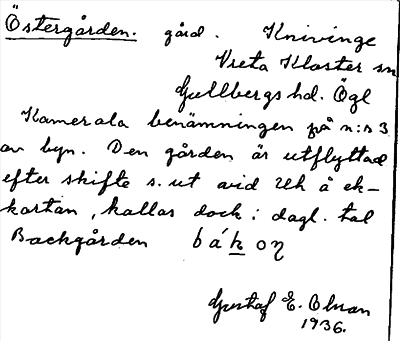 Östergården. gård. Knivinge
Vreta Kloster sn
Gullbergs hd. Ögl
Kamerala benämningen på n:o 3
av byn. Den gården är utflyttad
efter skifte s. ut vid Uh å ek-
kartan, kallas dock i dagl. tal
Backgården bákoŋ
Gustaf E. Olsson
1936.